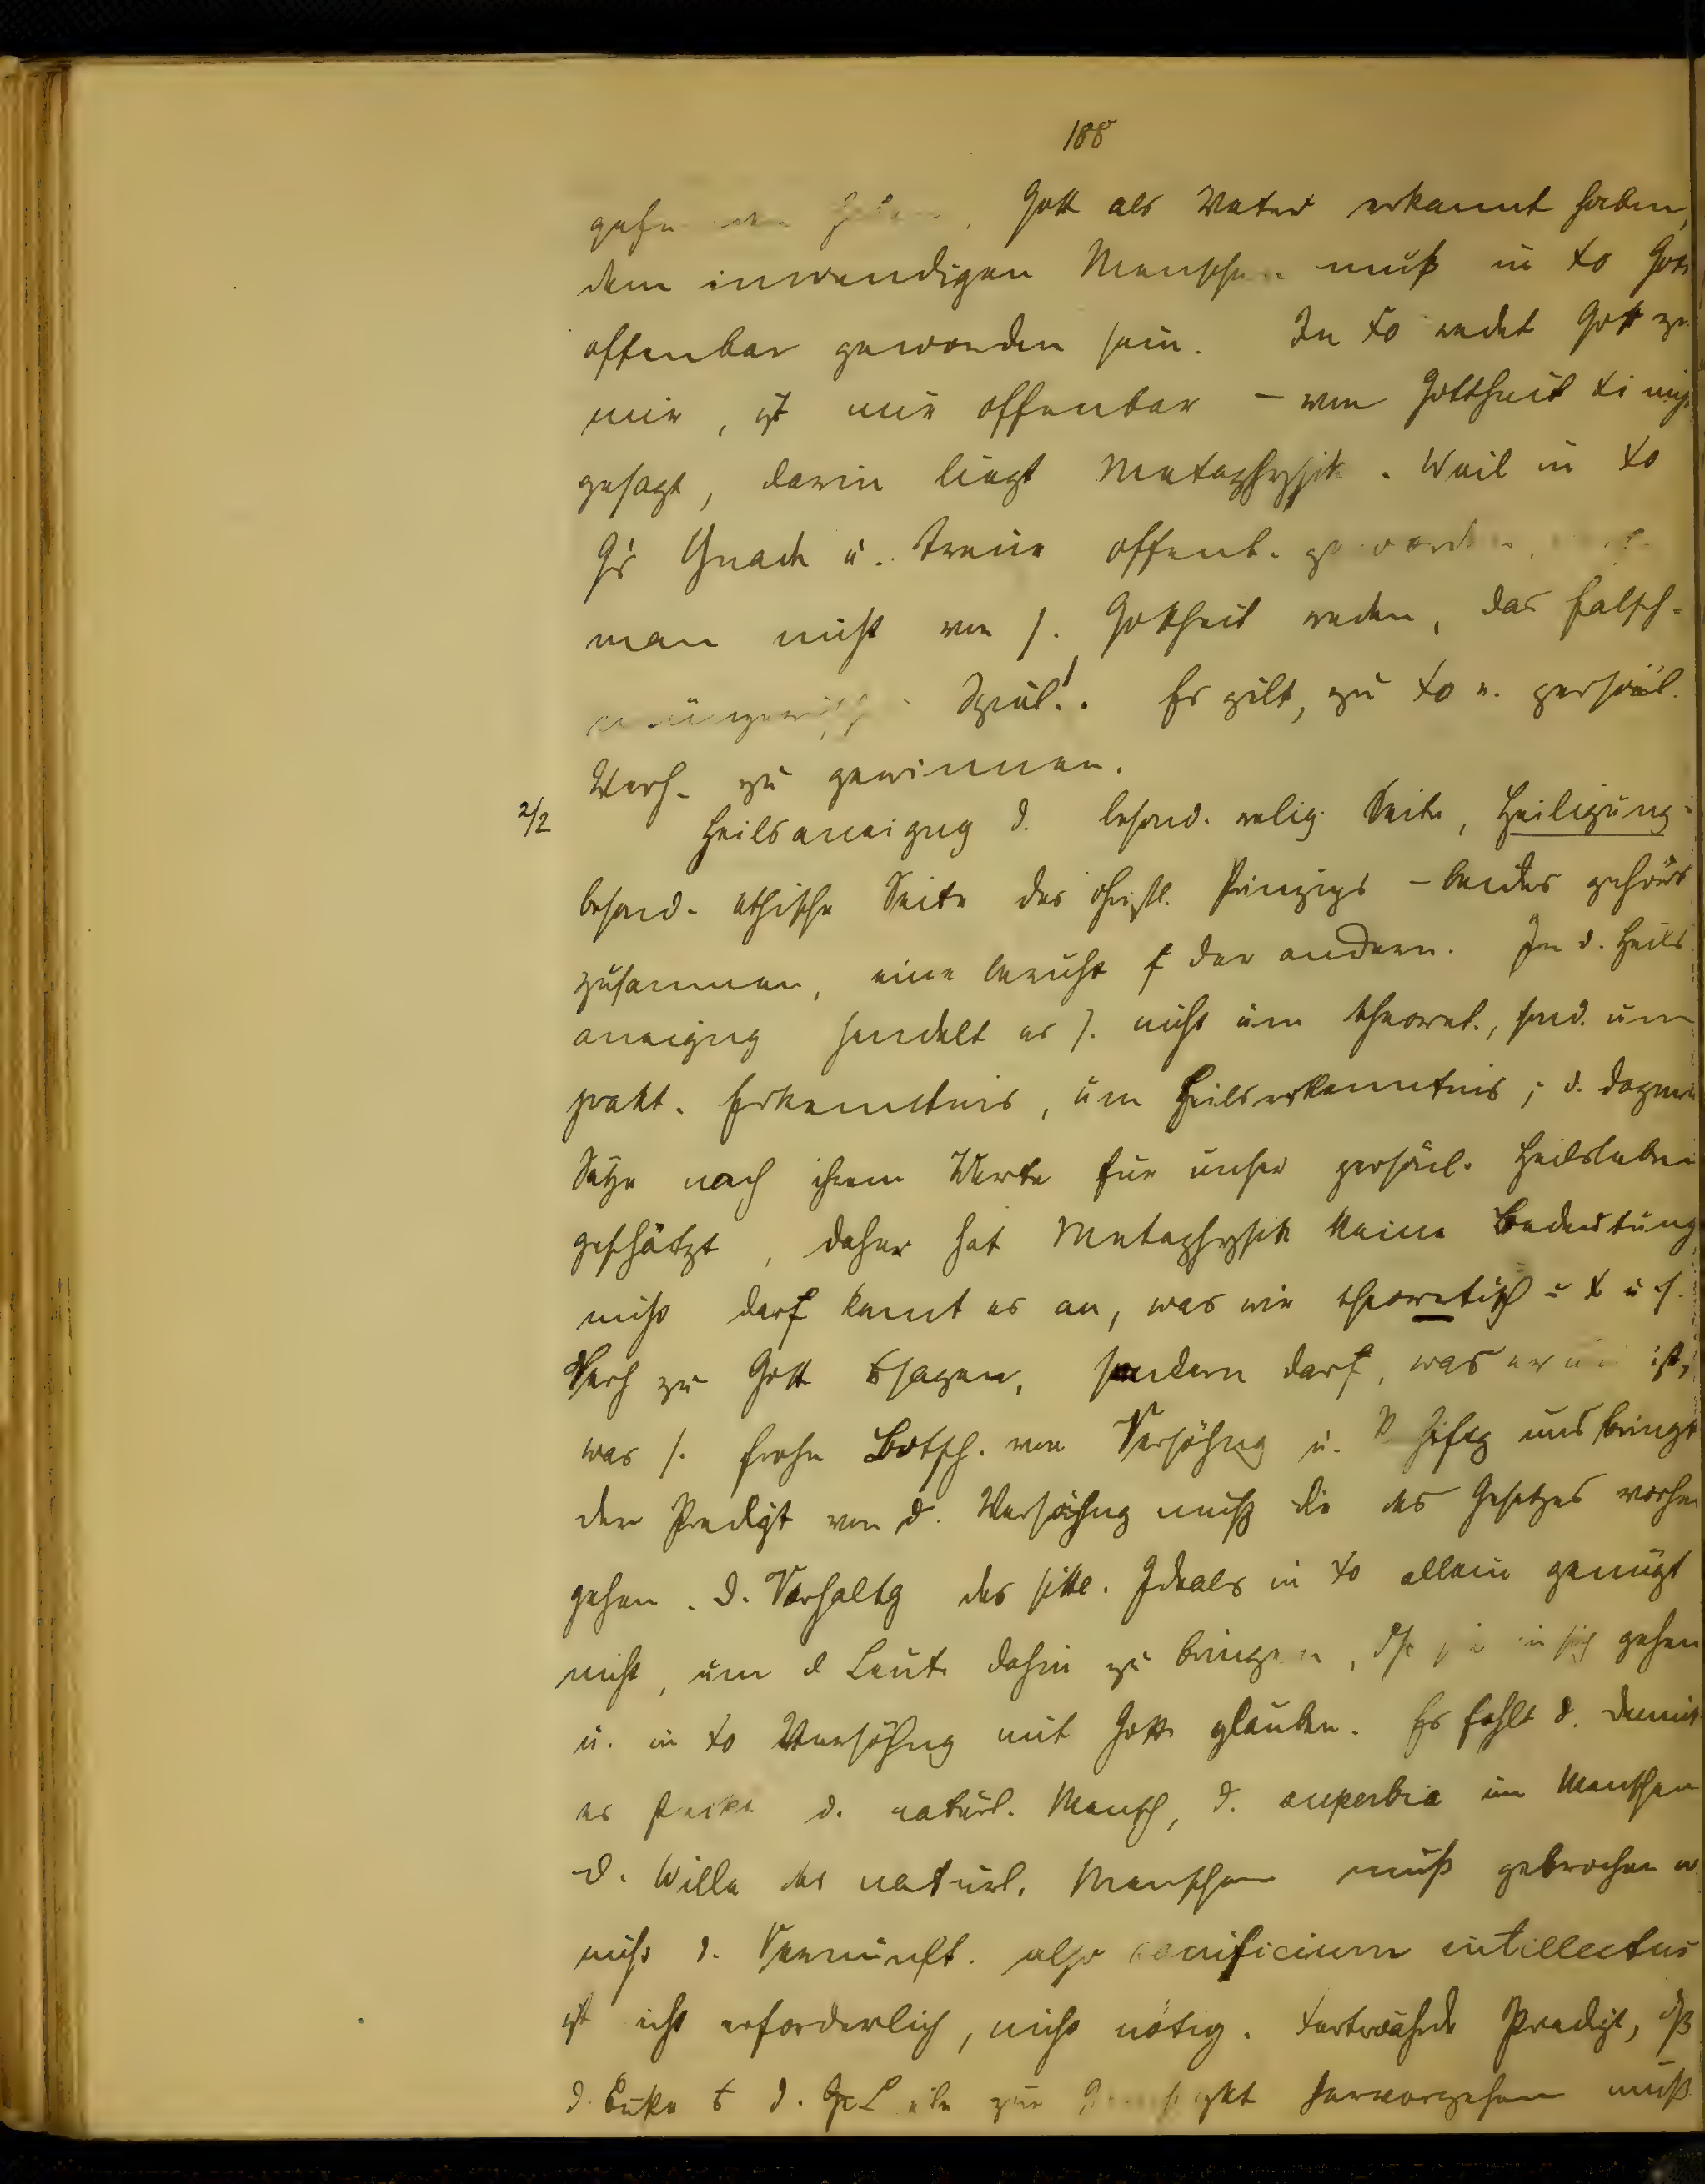 188
Gott als Vater erkannt haben,
dem inwendigen Menschen muß in Xo Gott
offenbar geworden sein. In Xo redet Gott zu
mir, ist mir offenbar – von Gottheit Xi nichts
gesagt, darin liegt Metaphysik. Weil in Xo
G's Gnade u. Treue offenb. geworden,
man nicht von s. Gottheit reden, das falsch-
münzerisches Spiel!. Es gilt, zu Xo e. persönl.
Verh. zu gewinnen.
2/2 Heilsaneigng d. besond. relig. Seite, Heiligung
besond. ethische Seite des christl. Prinzips – beides gehört
zusammen, eine beruht f der andern. In d. Heils
aneigng handelt es s. nicht um theoret., sond. um
prakt. Erkenntnis, um Heilserkenntnis; d. dogmat
Sätze nach ihrem Werte für unser persönl. Heilsleben
geschätzt, daher hat Metaphysik keine Bedeutung
nicht darf komt es an, was wir theoretisch ü X u s.
Verh zu Gott sagen, sondern darf, was er uns ist,
was s. frohe Botsch. von Versöhng u. uns bringt
der Predigt von d. Versöhng muß die des Gesetzes vorher
gehen. D. Vorhaltg des sittl. Ideals in Xo allein genügt
nicht, um d Leute dahin zu bringen, dß sie in sich gehen
u. in Xo Versöhng mit Gott glauben. Es fehlt d. Demut
es d. natürl. Mensch, d. superbia im Menschen
D. Wille des natürl. Menschen muß gebrochen w
nicht d. Vernunft. also sacrificium intellectus
ist nicht erforderlich, nicht nötig. Fortwährde Predigt, dß
d. Buße d. zur hervorgehen muß